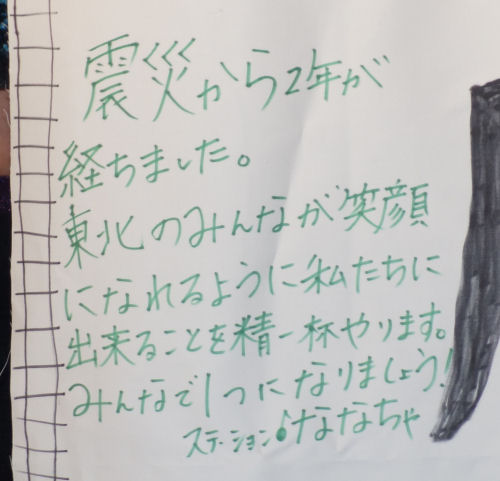 震災から2年が
経ちました。
東北のみんなが笑顔
になれるように私たちに
出来ることを精一杯やります。
みんなで1つになりましょう!
ステーション♪ななちゃ